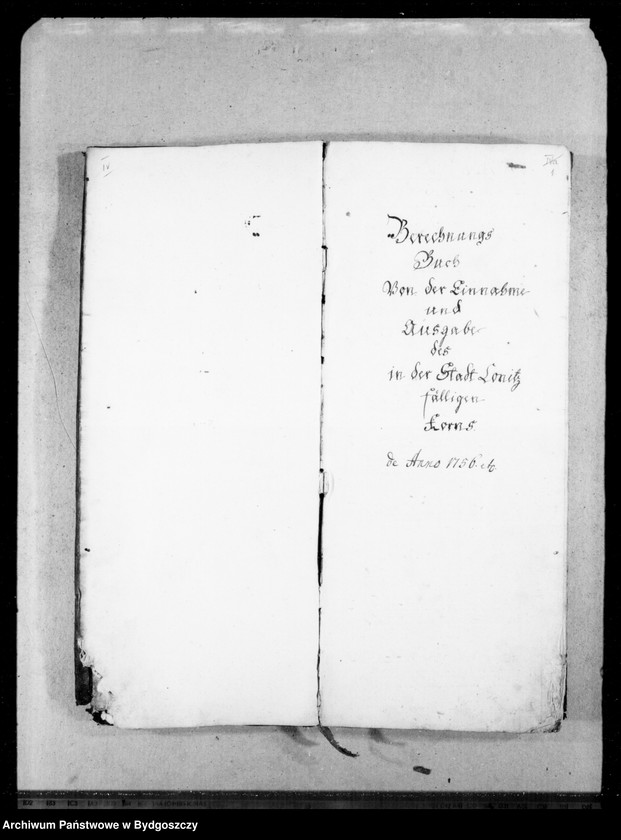 Berechnungs
Buch
Von der Einnahme
und
Ausgabe
des
in der Stadt Conitz
fälligen
Korns
de Anno 1756.
Archiwum Państwowe w Bydgoszczy